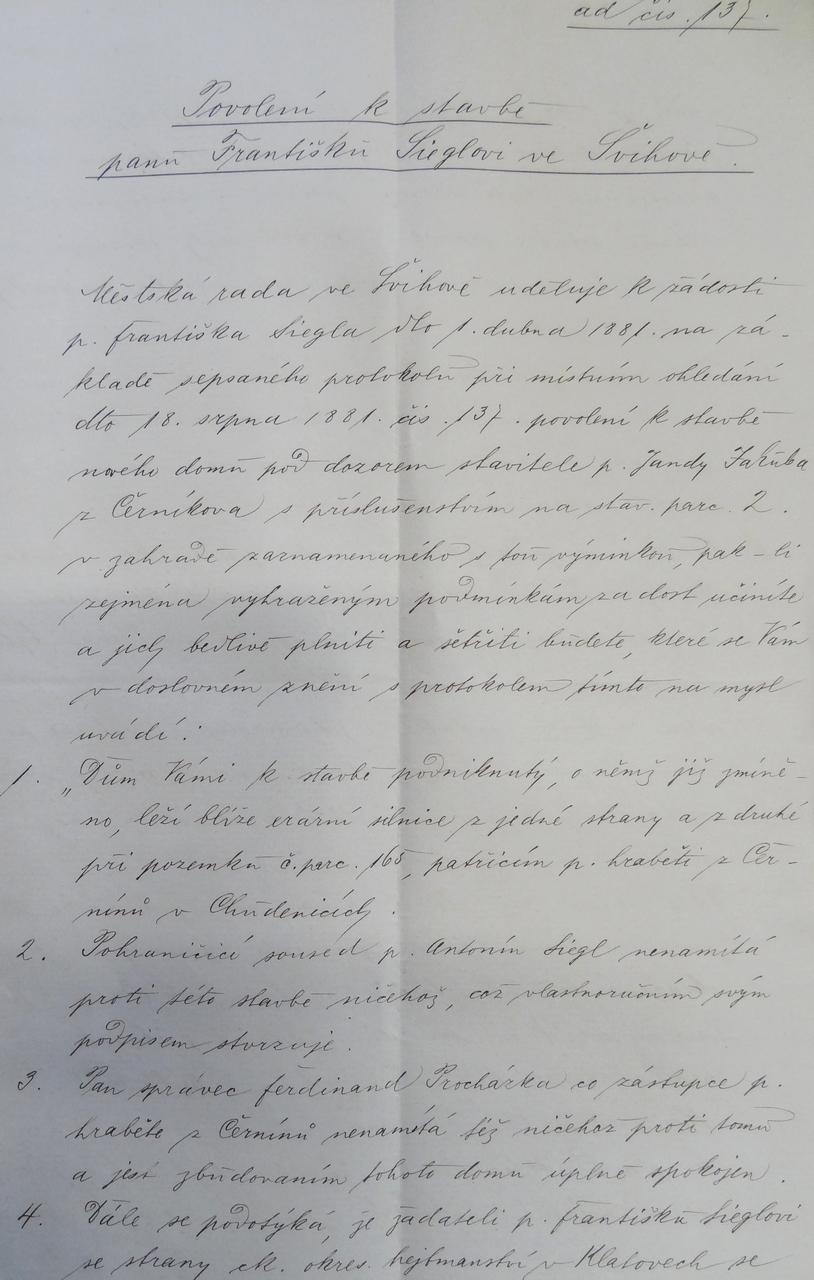 ad čís. 137.
Povolení k stavbě
panu Františku Sieglovi ve Švihově.
Městská rada ve Švihově uděluje k žádosti
p. Františka Siegla dto 1. dubna 1881. na zá-
kladě sepsaného protokolu při místním ohledání
dto 18. srpna 1881. čís. 137. povolení k stavbě
nového domu pod dozorem stavitele p. Jandy Jakuba
z Černíkova s příslušenstvím na stav. parc. 2.
v zahradě zaznamenaného s tou výminkou, pak-li
zejména vyhraženým podmínkám za dost učiníte
a jich bedlivě plniti a šetřiti budete, které se Vám
v doslovném znění s protokolem tímto na mysl
uvádí:
1. „Dům Vámi k stavbě podniknutý, o němž již zmíně-
no, leží blíže erární silnice z jedné strany a z druhé
při pozemku č. parc. 165, patřícím p. hraběti z Čer-
nínů v Chudenicích.
2. Pohraničící soused p. Antonín Siegl nenamítá
proti této stavbě ničehož, což vlastnoručním svým
podpisem stvrzuje.
3. Pan správec Ferdinand Procházka co zástupce p.
hraběte z Černínů nenamítá též ničehož proti tomu
a jest zbudovaním tohoto domu úplně spokojen.
4. Dále se podotýká, že žadateli p. Františku Sieglovi
se strany ck. okres. hejtmanství v Klatovech se